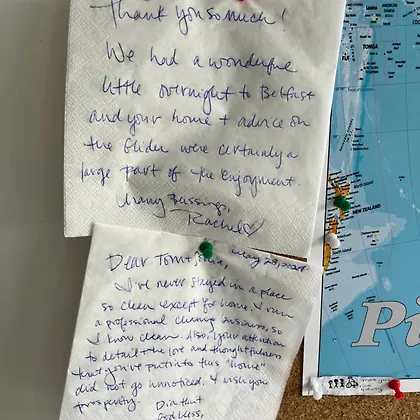 Thank you so much!
We had a wonderful
little overnight to Belfast
and your home + advice on
the Glider were certainly a
large part of the enjoyment.
Many Blessings,
Rachel♡
May 28,
Dear Tom
I've never stayed in a place
so clean except for home. I run
a professional cleaning business, so
I know clean. Also, your attention
to detail + the love and thoughtfulness
that you've put into this "home"
did not go unnoticed. I wish you
prosperity.
God bless,
FIJI
TONGA
NEW ZEALAND
North Island
Pi